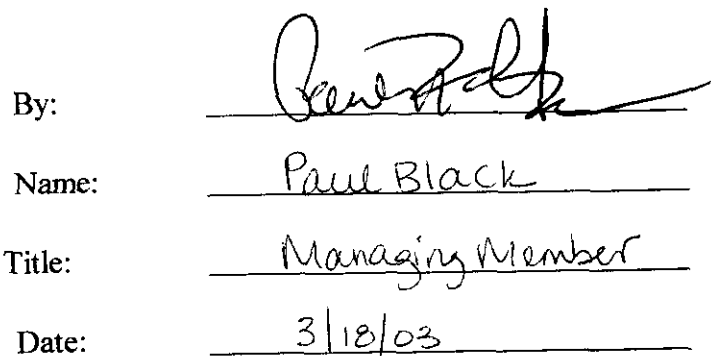 By:
Name: Paul Black
Title: Managing Member
Date: 3/18/03